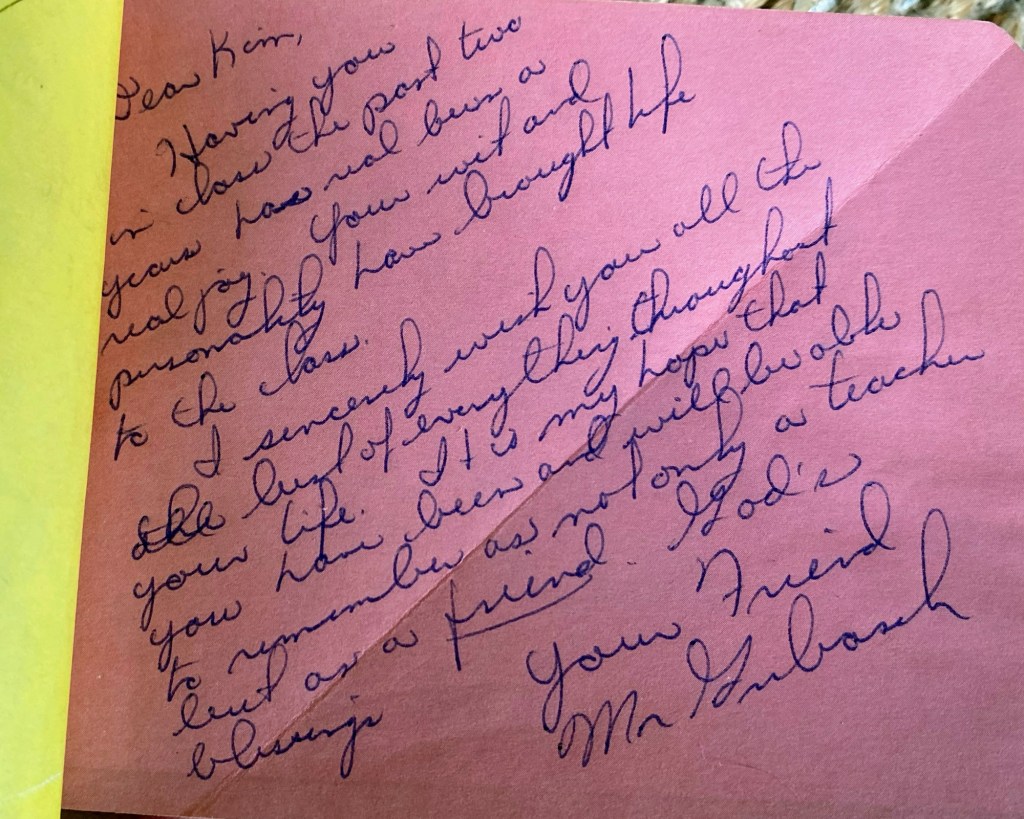 Dear Kim,
Having you
in class the past two
years has real been a
real joy. Your wit and
personality have brought life
to the class.
I sincerely wish you all the
the best of everything throughout
your life. It is my hope that
you have been and will be able
to remember as not only a teacher
but as a friend. God's
blessings
Your Friend
Mr Grubasch